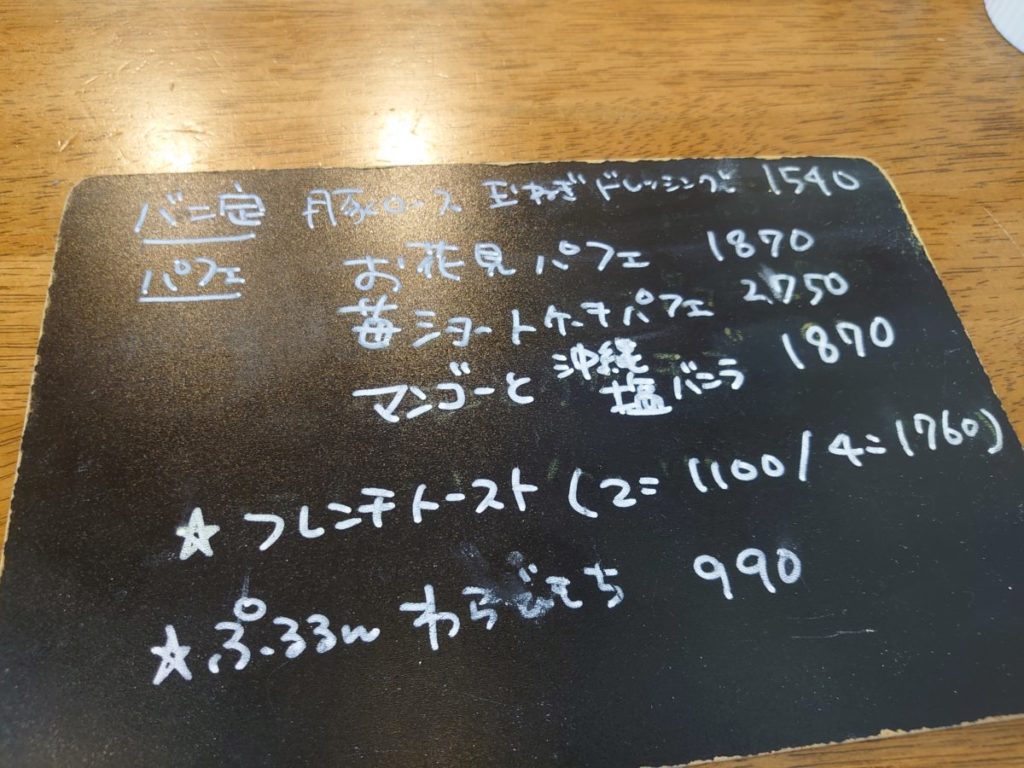 バニ定 豚ロース 玉ねぎドレッシング 1540
パフェ お花見パフェ 1870
苺ショートケーキパフェ 2750
マンゴーと沖縄塩バニラ 1870
☆フレンチトースト (2=1100/4=1760)
☆ぷるるん わらびもち 990